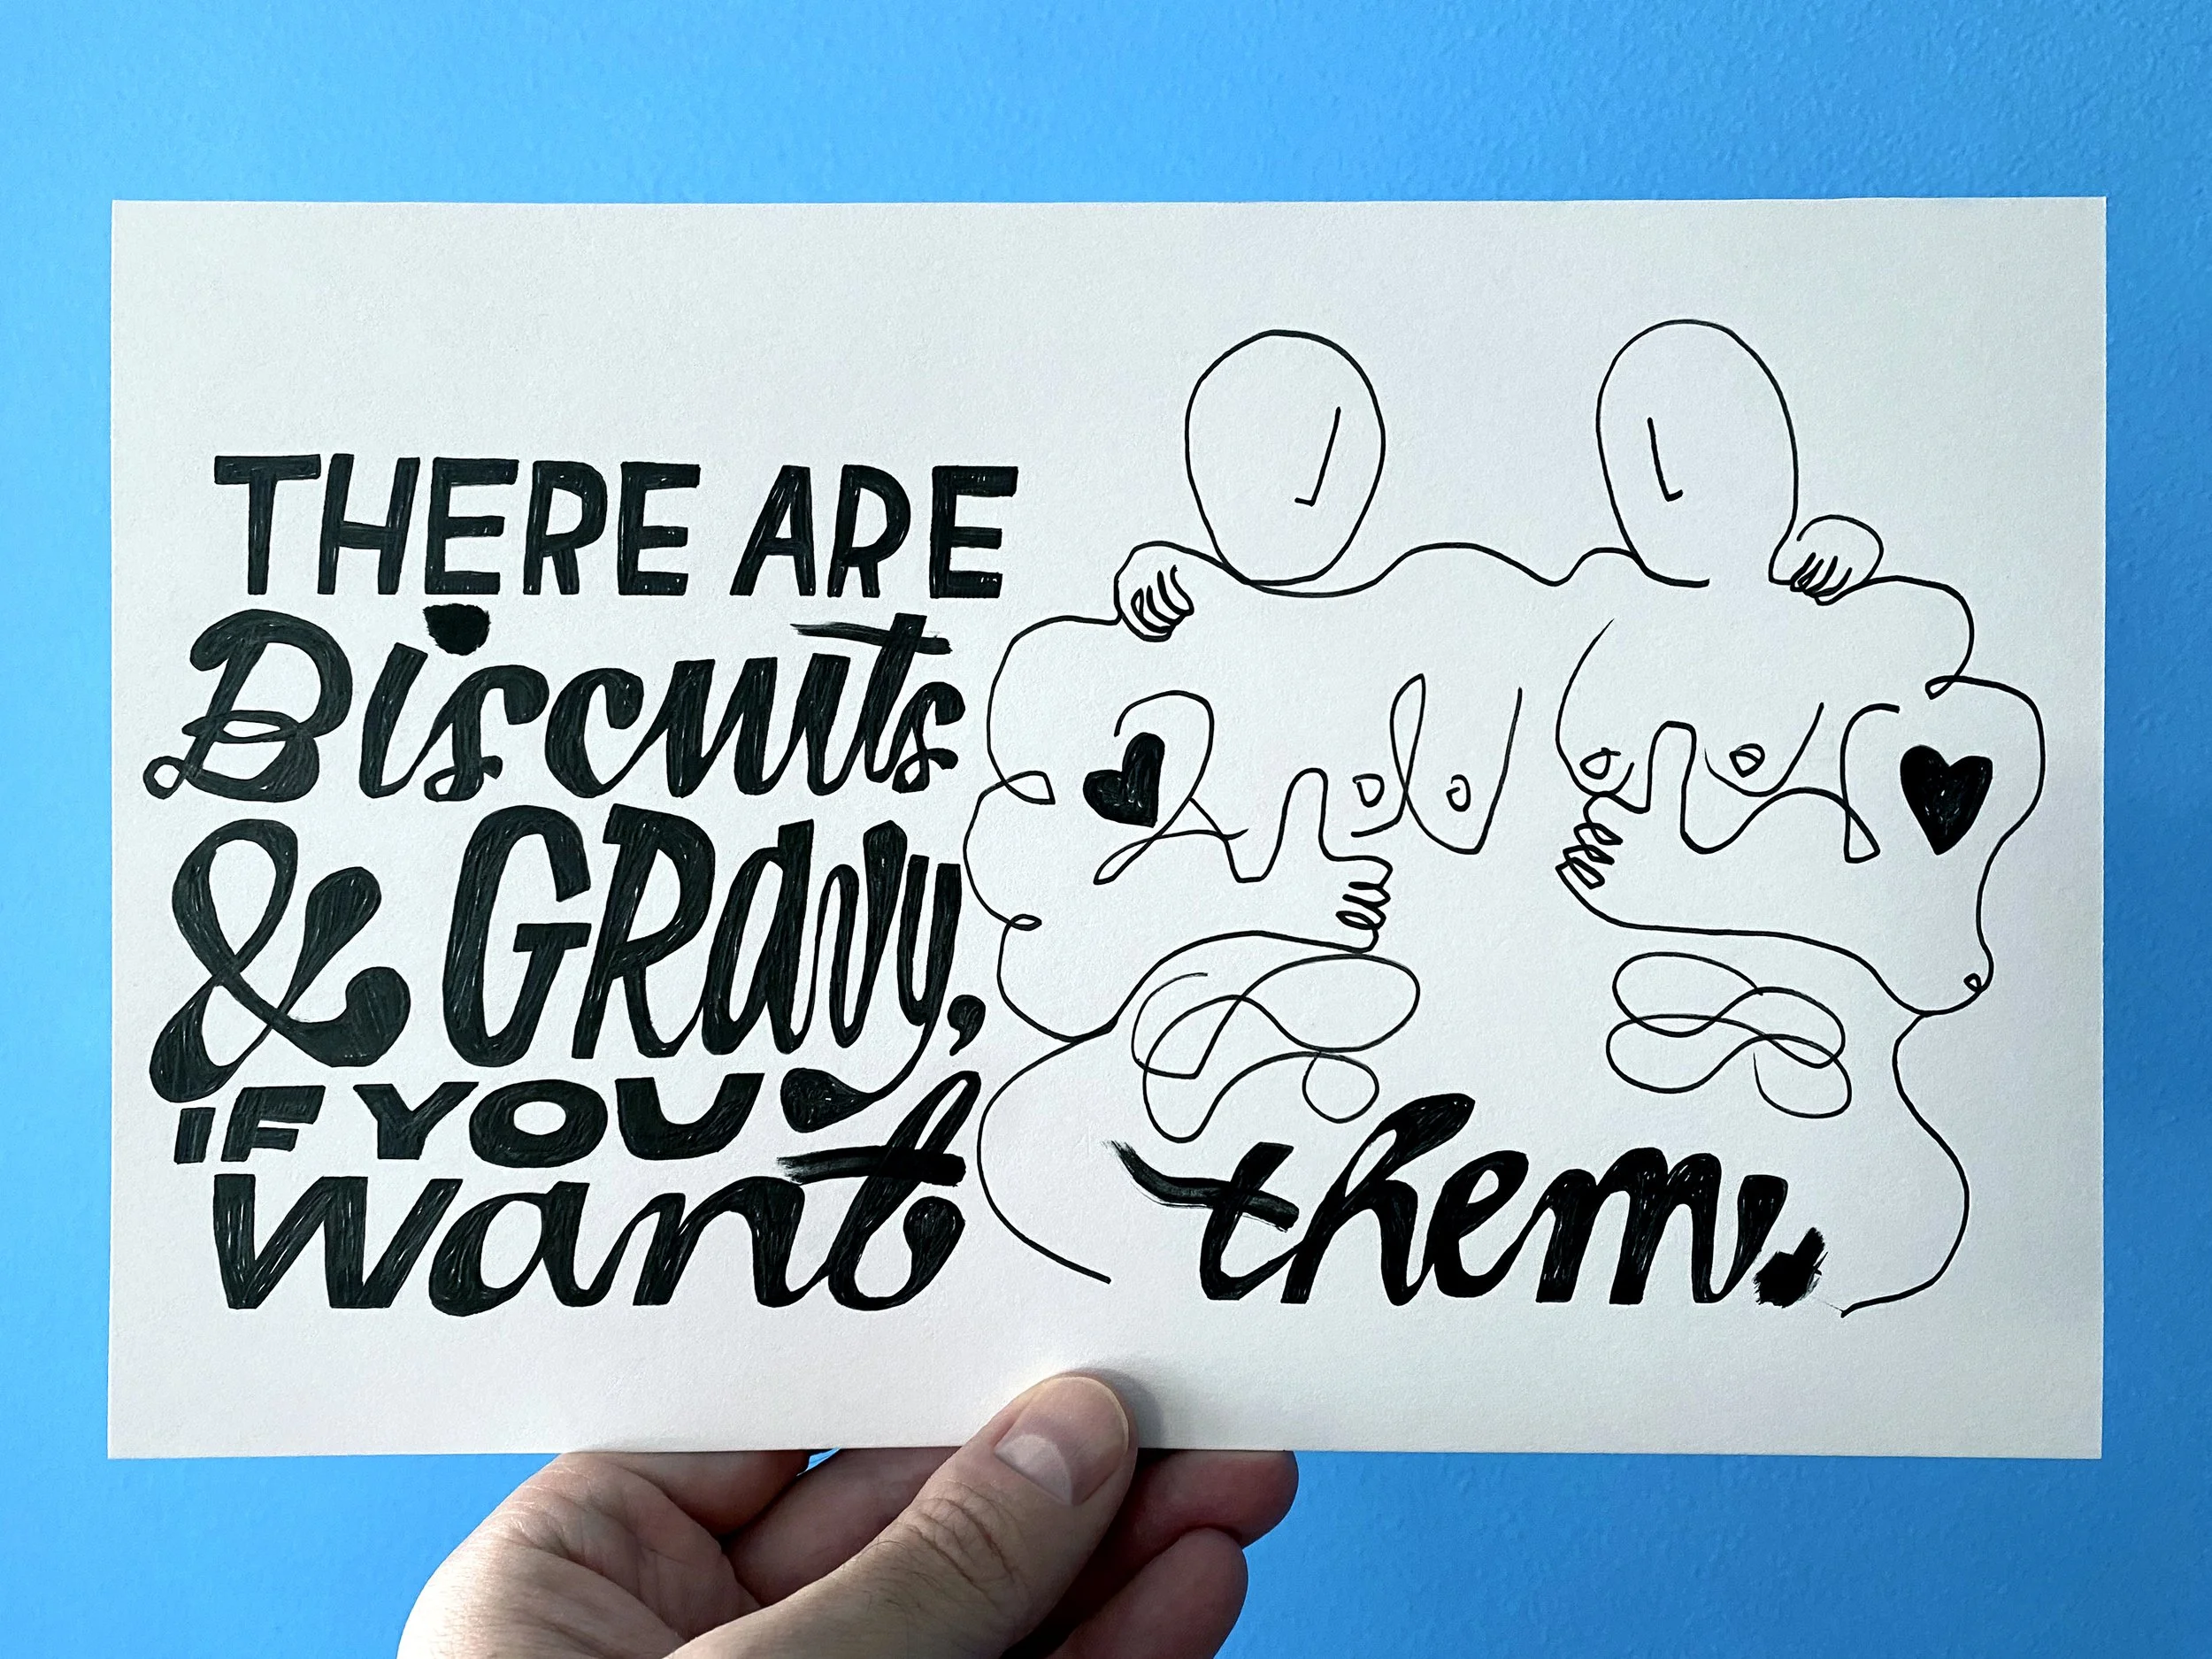 THERE ARE
Biscuits
& GRavy,
IF YOU
want them.